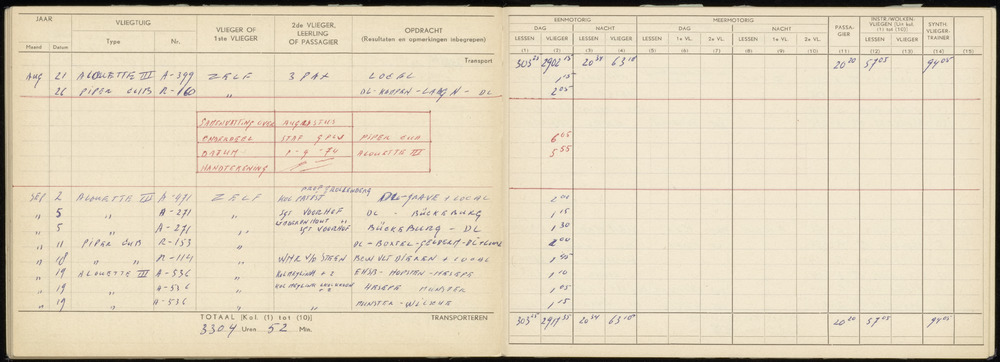 JAAR VLIEGTUIG VLIEGER OF 1ste VLIEGER 2de VLIEGER, LEERLING OF PASSAGIER OPDRACHT (Resultaten en opmerkingen inbegrepen)
Maand Datum Type Nr.
Transport
Aug 21 ALOUETTE III A-399 ZELF 3 PAX LOCAL
26 PIPER CUB R-160 „ DL - - DL
SAMENVATTING OVER AUGUSTUS
ONDERDEEL STAF GPLV PIPER CUB
DATUM 1-9-74 ALOUETTE III
HANDTEKENING
SEP 2 ALOUETTE III A-471 ZELF DL-GRAVE + LOCAL
„ 5 „ „ A-271 „ SGT VOORHOF DL - BÜCKEBURG
„ 5 „ A-271 „ SGT VOORHOF BÜCKEBURG - DL
„ 11 PIPER CUB R-153 „ DL-BOXTEL-
„ 18 „ „ „ WNR V/D STEEN + LOCAL
„ 19 ALOUETTE III A-536 „ + 2 EHSB - HOPSTEN - HESEPE
„ 19 A-536 „ + 2 HESEPE MUNSTER
„ 19 „ A-536 „ MUNSTER -
TOTAAL [Kol. (1) tot (10)] TRANSPORTEREN
3304 Uren 52 Min.
EENMOTORIG MEERMOTORIG PASSAGIER INSTR./WOLKENVLIEGEN [Uit kol. (1) tot (10)] SYNTH. VLIEGERTRAINER
DAG NACHT DAG NACHT
LESSEN VLIEGER LESSEN VLIEGER LESSEN 1e VL. 2e VL. LESSEN 1e VL. 2e VL. LESSEN VLIEGER
(1) (2) (3) (4) (5) (6) (7) (8) (9) (10) (11) (12) (13) (14) (15)
303 25 2902 15 20 54 63 18 20 20 57 05 94 05
1 15
2 05
6 05
5 55
1 15
1 30
2 00
1 45
1 10
1 05
1 15
303 25 2917 35 20 54 63 18 20 20 57 05 94 05